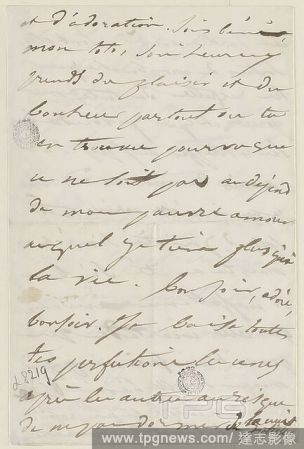 et d'adoration. Sois béni
mon toto, sois heureux
prends du plaisir et du
bonheur partout où tu
en trouves pourvu que
ce ne soit pas au dépend
de mon pauvre amour
auquel je tiens plus qu'à
la vie. Bonsoir, adoré,
bonsoir. Je baise toutes
tes perfections les unes
après les autres au risque
de ne pas dormir de la nuit
28219
TPG
www.tpgnews.com / 達志影像